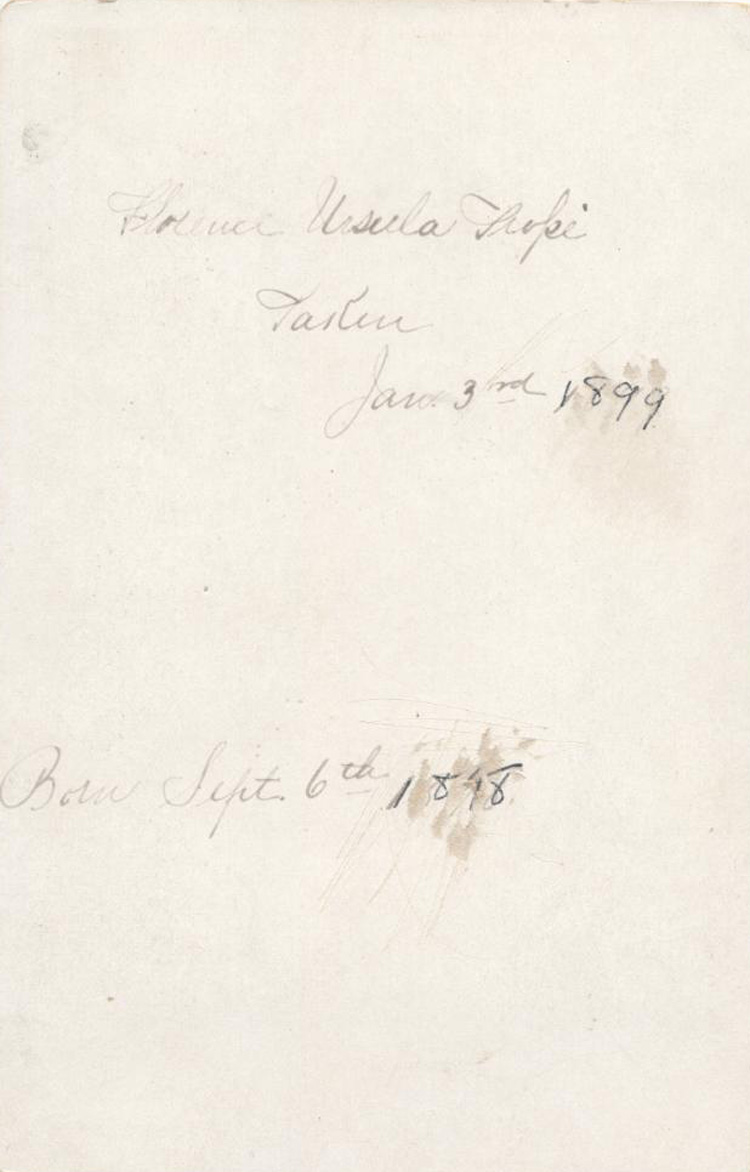 Florence Ursula
Taken
Jan. 3rd 1899
Born Sept. 6th